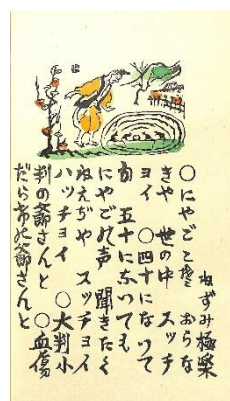 ねずみ極楽
○にやごこ捲 おらな
きや 世の中 スッチ
ョイ ○四十になつて
も 五十になつても
にやごれ声 聞きたく
ねえぢや スッチョイ
ハッチョイ ○大判小
判の爺さんと ○血傷
だら爺さんと